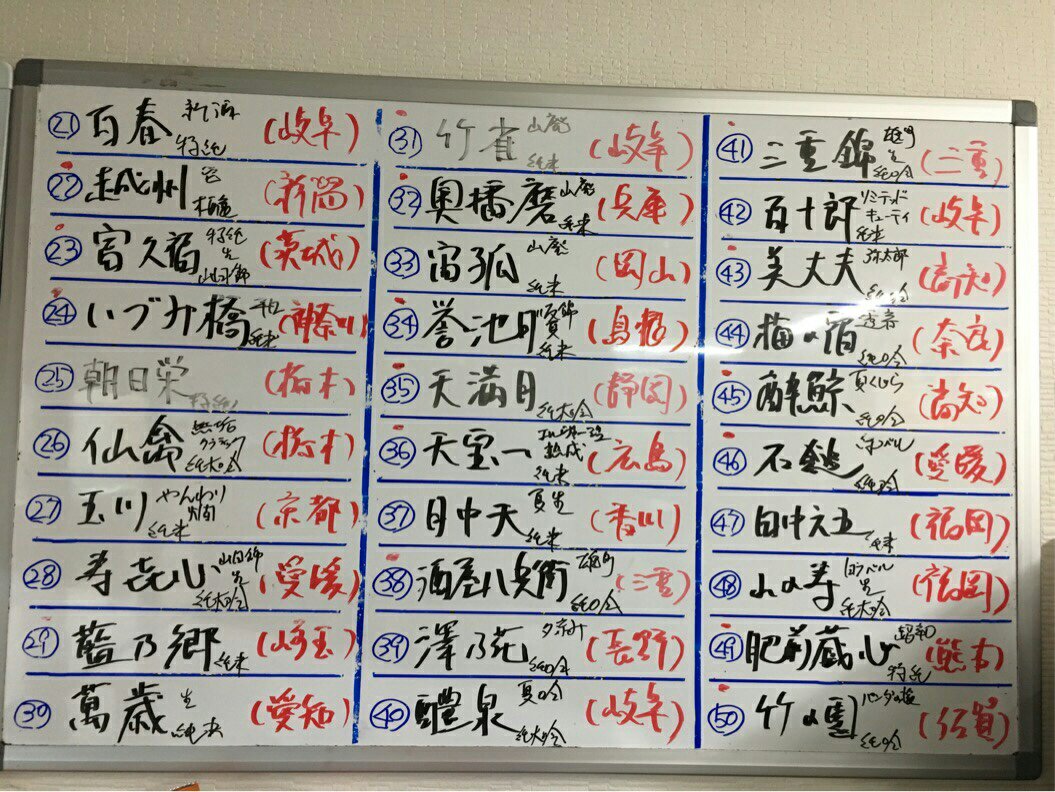 ㉑ 百春 新酒 特純 (岐阜)
㉒ 越州 (新潟)
㉓ 富久福 特純 生 山田錦 (茨城)
㉔ いづみ橋 純米 (神奈川)
㉕ 朝日栄 特純 (栃木)
㉖ 仙禽 無垢 クラシック 純大吟 (栃木)
㉗ 玉川 やんわり 純米 (京都)
㉘ 寿喜心 山田錦 生 純大吟 (愛媛)
㉙ 藍乃郷 純米 (埼玉)
㉚ 萬歳 生 純米 (愛知)
㉛ 竹雀 山廃 純米 (岐阜)
㉜ 奥播磨 山廃 純米 (兵庫)
㉝ 宮孤 山廃 純米 (岡山)
㉞ 誉池月 純米 (島根)
㉟ 天満月 純大吟 (静岡)
㊱ 天宝一 熟成 純米 (広島)
㊲ 月中天 夏生 純米 (香川)
㊳ 酒屋八兵衛 雄町 純吟 (三重)
㊴ 澤乃花 夕涼み 純吟 (長野)
㊵ 醴泉 夏吟 純大吟 (岐阜)
㊶ 三重錦 雄町 生 純吟 (三重)
㊷ 百十郎 リミテッド キューティ 純米 (岐阜)
㊸ 美丈夫 弥太郎 純吟 (高知)
㊹ 梅の宿 純吟 (奈良)
㊺ 酔鯨 夏くじら 純吟 (高知)
㊻ 石鎚 純吟 (愛媛)
㊼ 田中六五 純米 (福岡)
㊽ 山の寿 生 純大吟 (福岡)
㊾ 肥前蔵心 昭和 特純 (熊本)
㊿ 竹の園 パンダの穂 純吟 (佐賀)